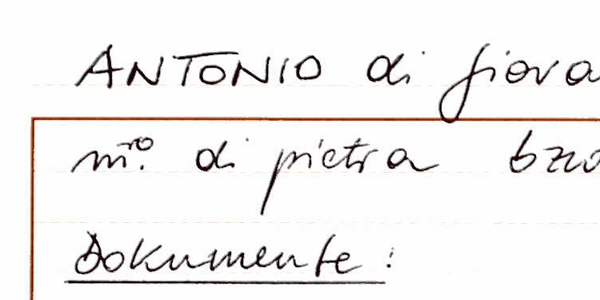 ANTONIO di giova
m.ro di pietra
Dokumente: